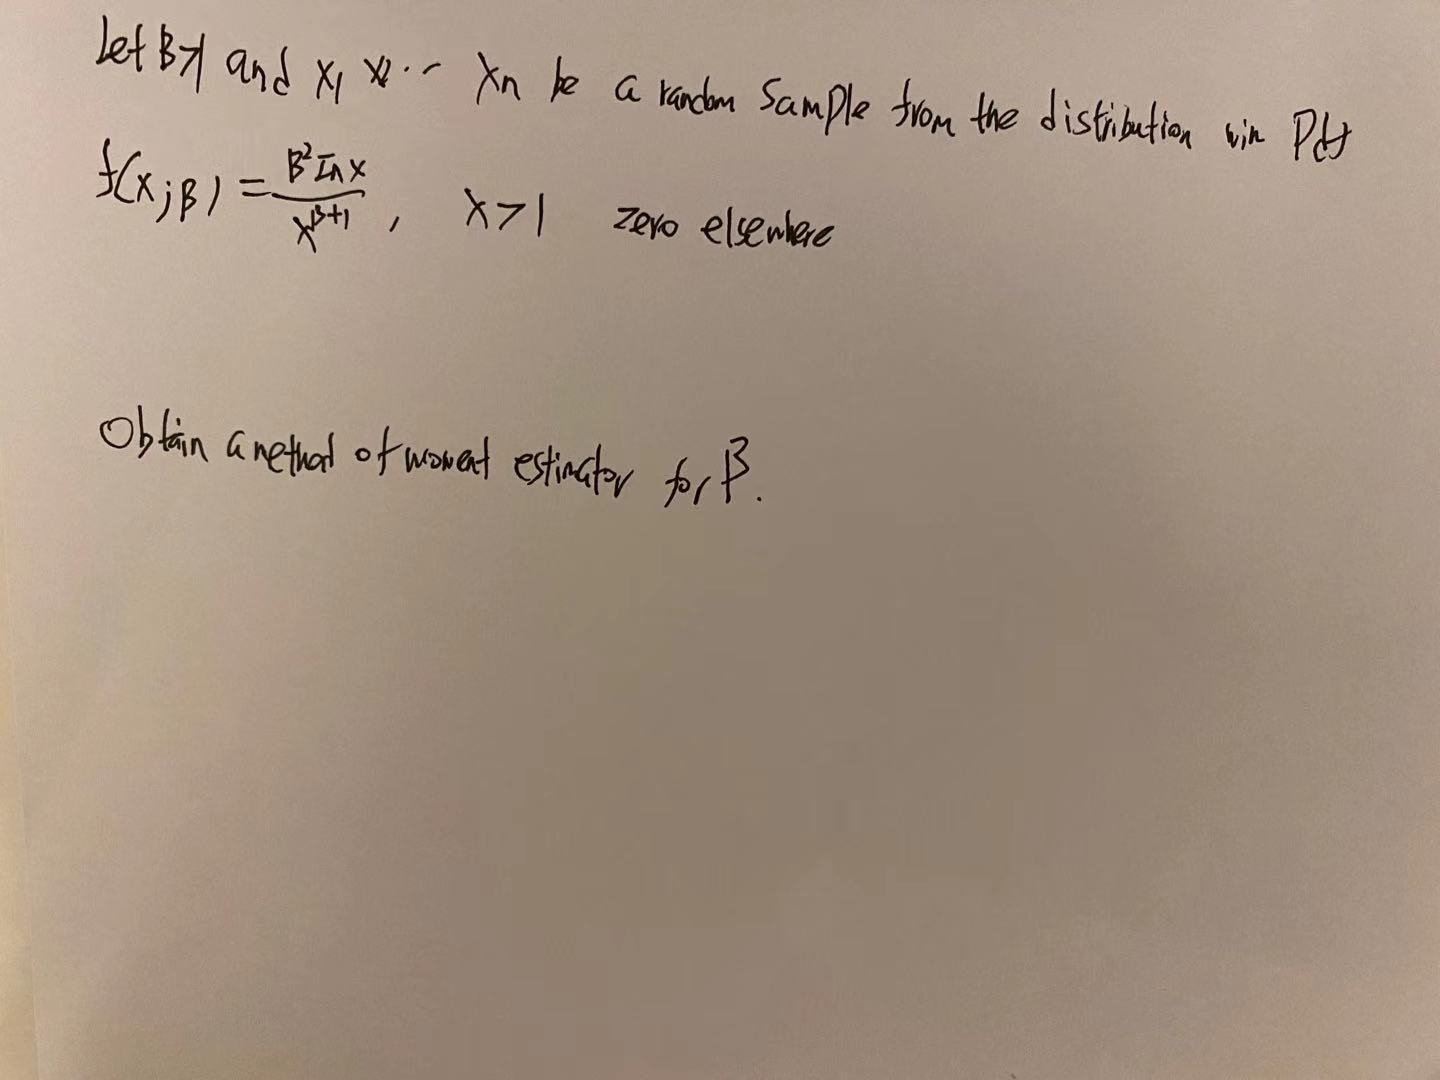 Let β>1 and X1 X2 ... Xn be a random sample from the distribution win Pdf
f(x;β) = β² ln x / x^(β+1), x>1 zero elsewhere
Obtain a method of moment estimator for β.